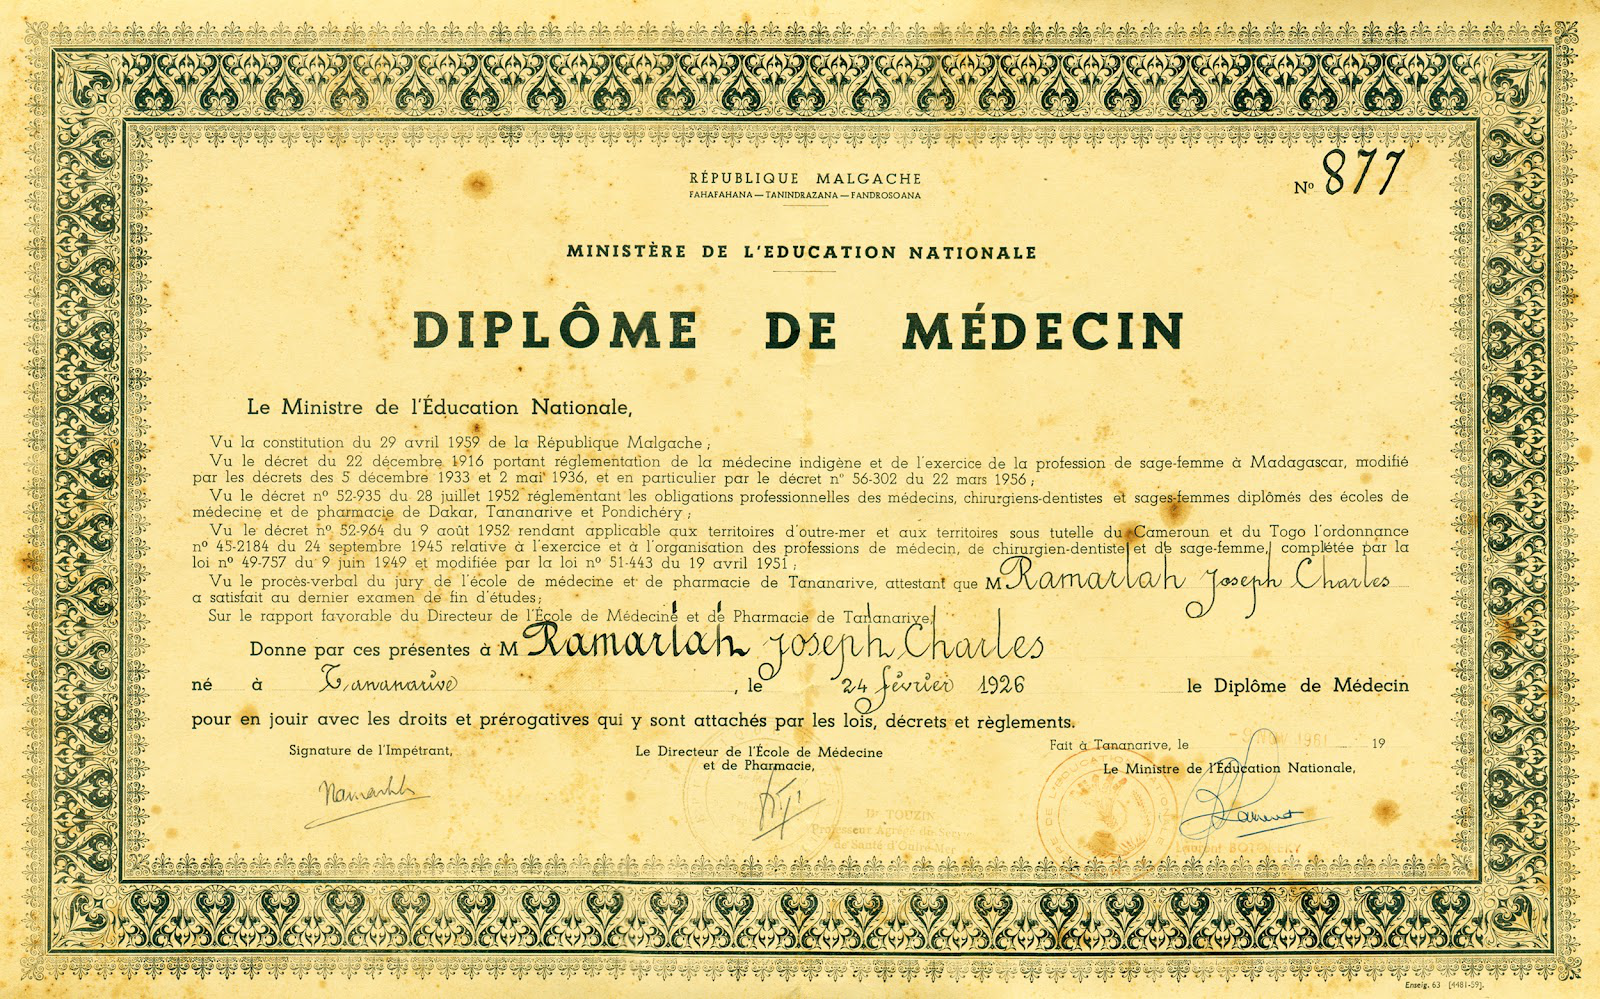 RÉPUBLIQUE MALGACHE
FAHAFAHANA — TANINDRAZANA — FANDROSOANA
Nº 877
MINISTÈRE DE L'EDUCATION NATIONALE
DIPLÔME DE MÉDECIN
Le Ministre de l'Éducation Nationale,
Vu la constitution du 29 avril 1959 de la République Malgache ;
Vu le décret du 22 décembre 1916 portant réglementation de la médecine indigène et de l'exercice de la profession de sage-femme à Madagascar, modifié
par les décrets des 5 décembre 1933 et 2 mai 1936, et en particulier par le décret nº 56-302 du 22 mars 1956 ;
Vu le décret nº 52-935 du 28 juillet 1952 réglementant les obligations professionnelles des médecins, chirurgiens-dentistes et sages-femmes diplômés des écoles de
médecine et de pharmacie de Dakar, Tananarive et Pondichéry ;
Vu le décret nº 52-964 du 9 août 1952 rendant applicable aux territoires d'outre-mer et aux territoires sous tutelle du Cameroun et du Togo l'ordonnance
nº 45-2184 du 24 septembre 1945 relative à l'exercice et à l'organisation des professions de médecin, de chirurgien-dentiste et de sage-femme, complétée par la
loi nº 49-757 du 9 juin 1949 et modifiée par la loi nº 51-443 du 19 avril 1951 ;
Vu le procès-verbal du jury de l'école de médecine et de pharmacie de Tananarive, attestant que M Ramarlah Joseph Charles
a satisfait au dernier examen de fin d'études;
Sur le rapport favorable du Directeur de l'École de Médecine et de Pharmacie de Tananarive,
Donne par ces présentes à M Ramarlah Joseph Charles
né à Tananarive, le 24 février 1926 le Diplôme de Médecin
pour en jouir avec les droits et prérogatives qui y sont attachés par les lois, décrets et règlements.
Signature de l'Impétrant,
Le Directeur de l'École de Médecine
et de Pharmacie,
Fait à Tananarive, le NOV 1961 19
Le Ministre de l'Éducation Nationale,
Dr TOUZIN
Professeur Agrégé du Service
de Santé d'Outre-Mer
Laurent BOTOKEKY
Enseig. 63 [4481-59].